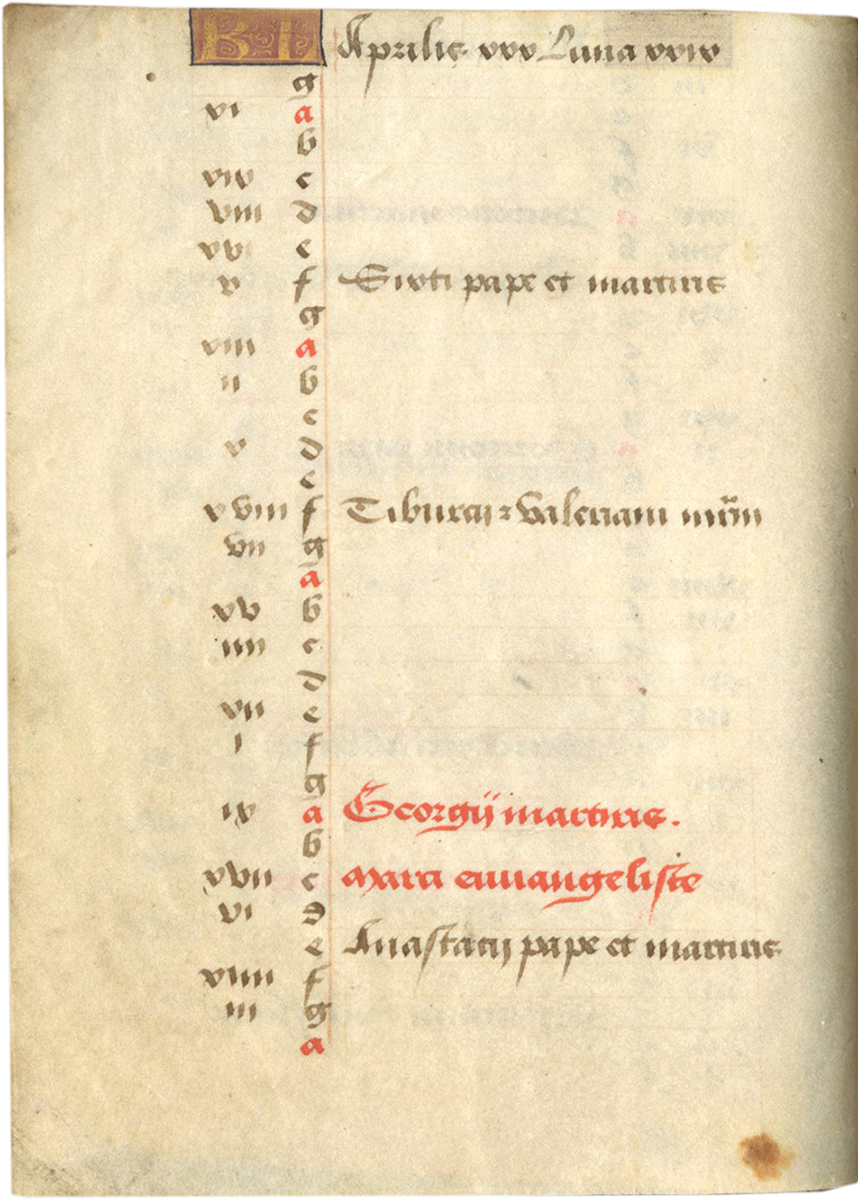 KL Aprilis xxx Luna xxix
g
xi a
b
xix c
viii d
xvi e
v f Sixti pape et martiris
g
xiii a
ii b
c
x d
e
xviii f Tiburcij ⁊ Valeriani mr̃m
vii g
a
xv b
iiii c
d
xii e
i f
g
ix a Georgij martiris.
b
xvii c Marci euuangeliste
vi d
e Anastacij pape et martiris
xiiii f
iii g
a